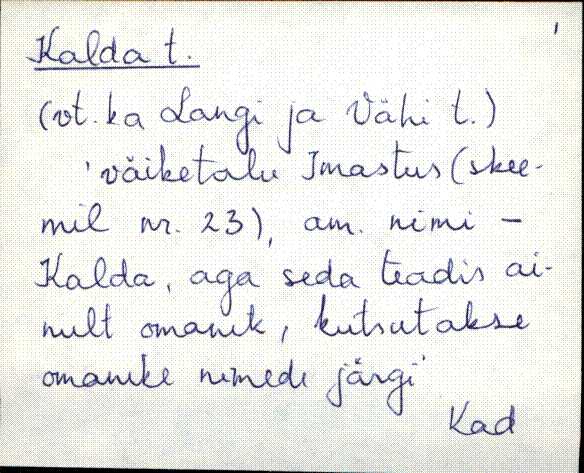 Kalda t.
(vt. ka Langi ja Vähi t.)
'väiketalu Imastus (skee-
mil nr. 23), am. nimi –
Kalda, aga seda teadis ai-
nult omanik, kutsutakse
omanike nimede järgi'
Kad